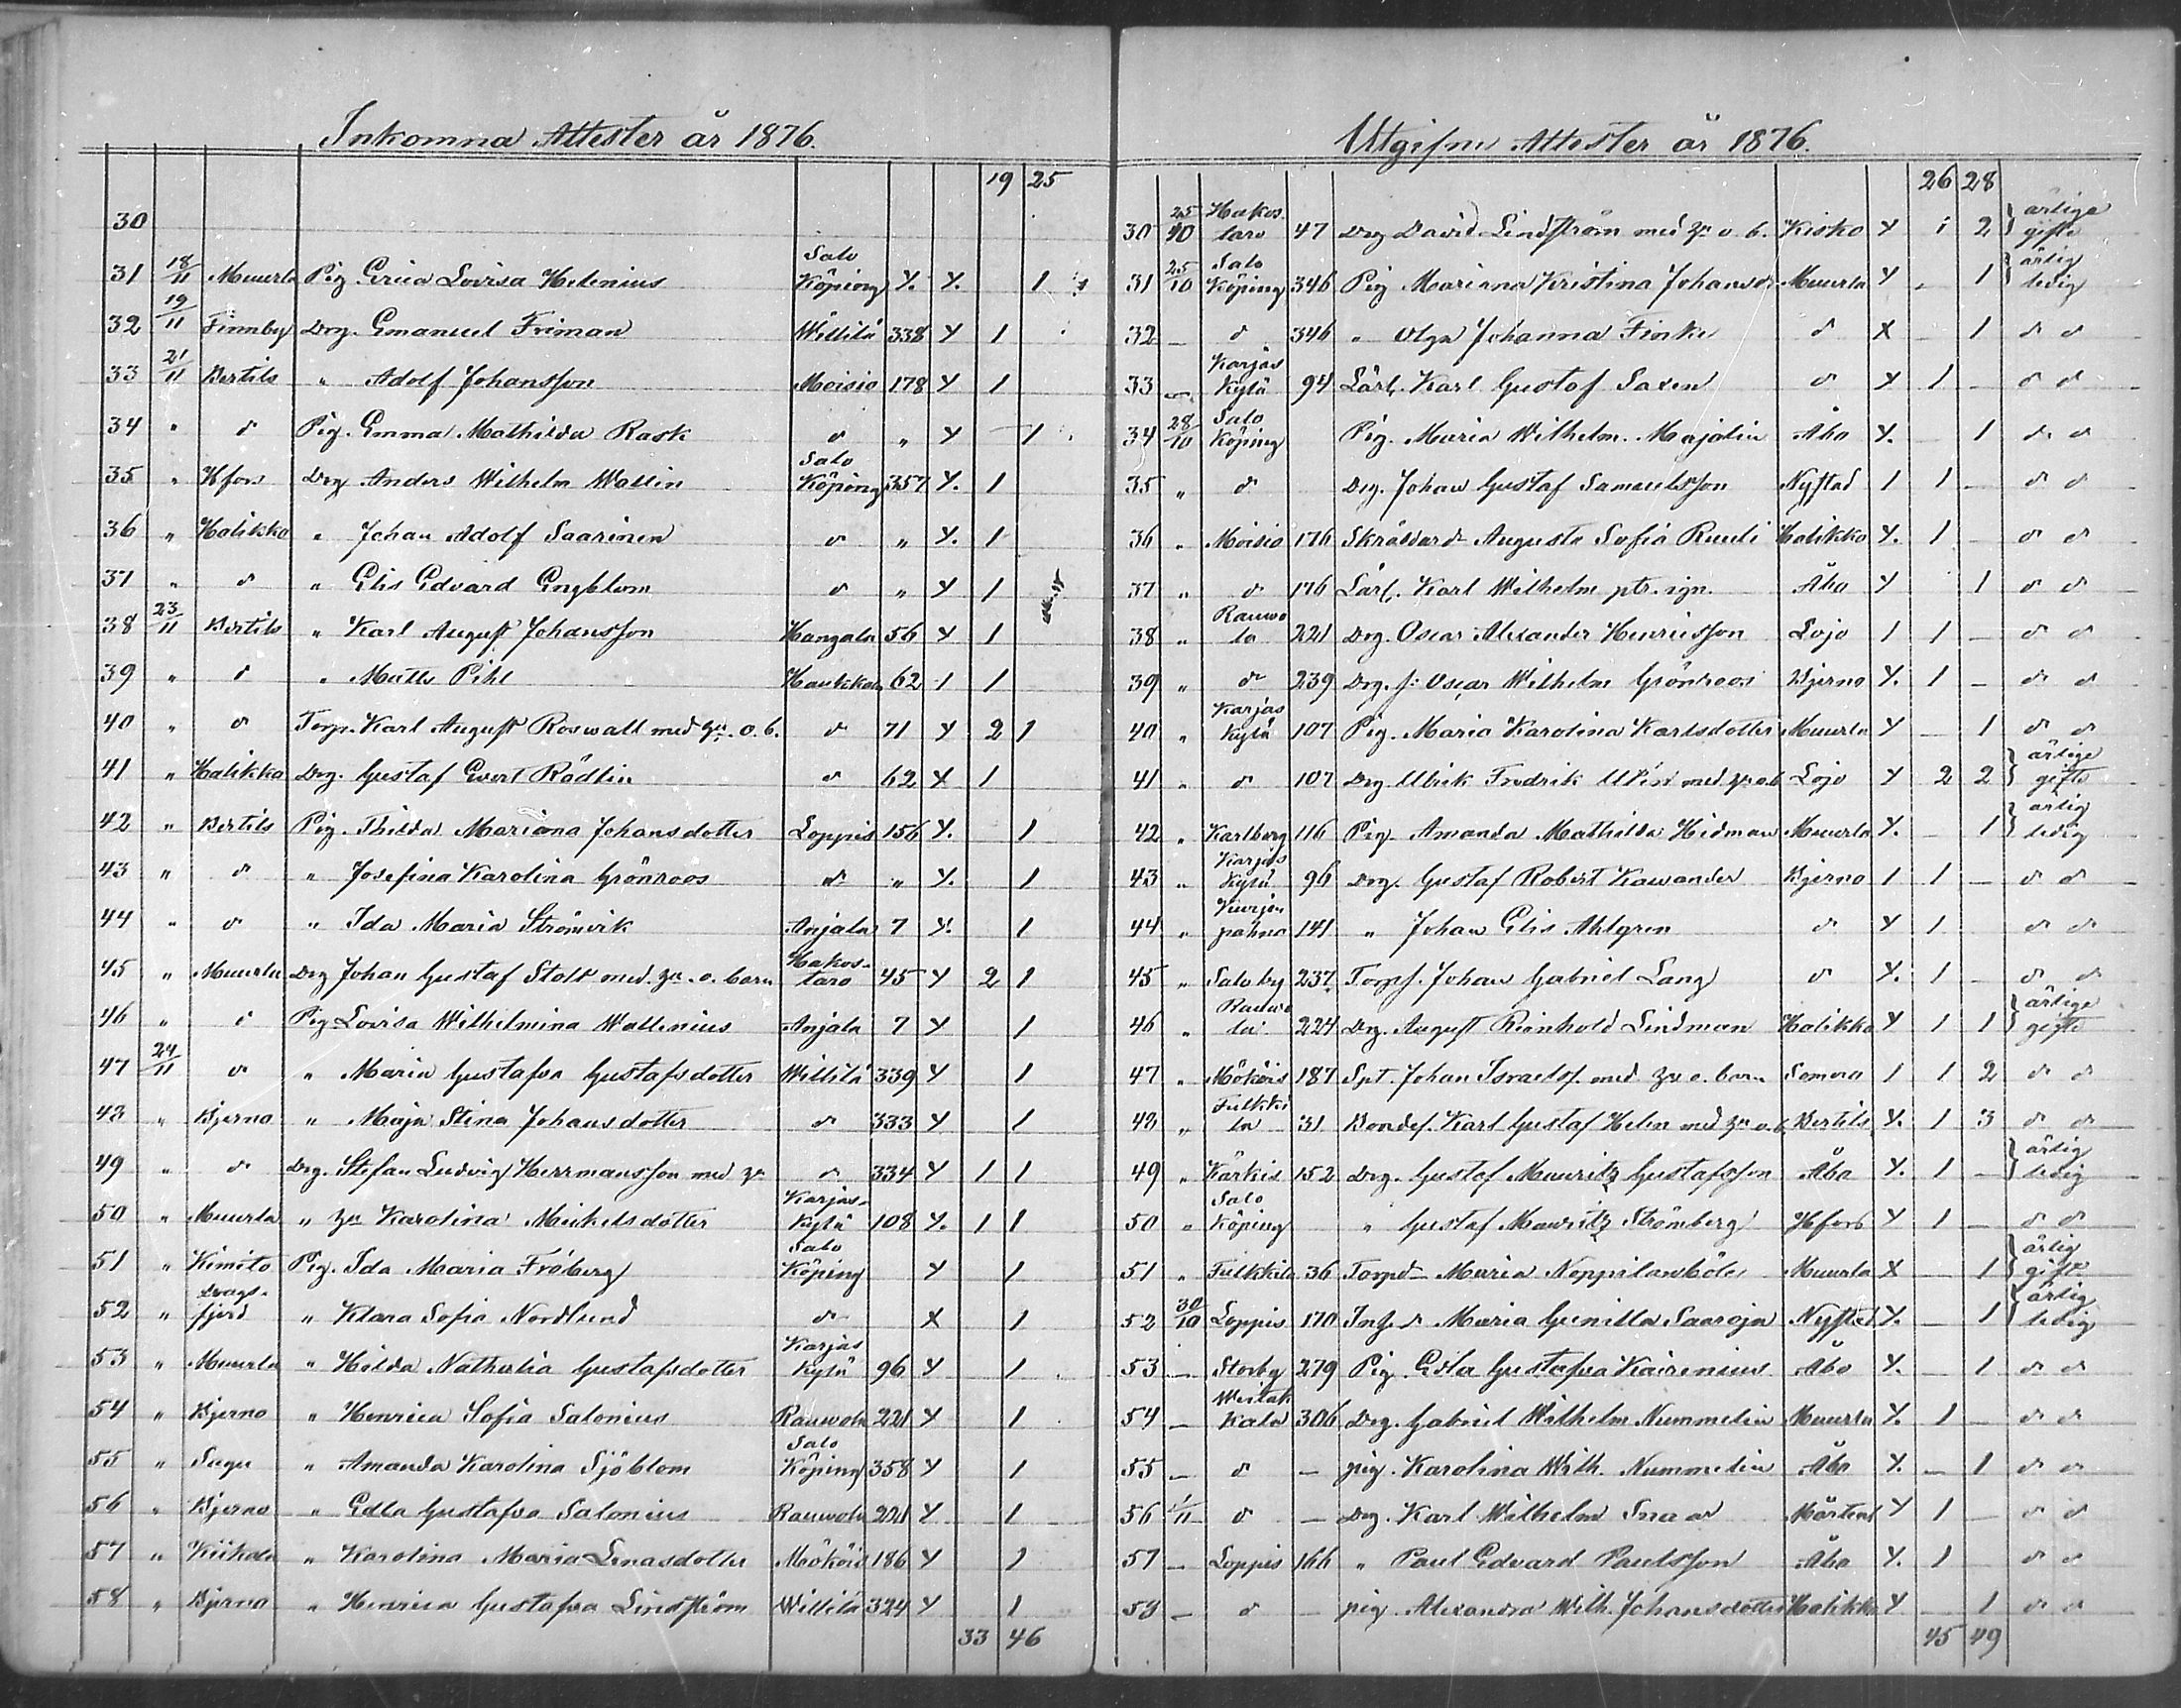 Inkomna Attester år 1876.
19 25
30
31 18/11 Muurla Pig. Erica Lovisa Helenius Salo Köping Y. Y. 1
32 19/11 Finnby Drg. Emanuel Friman Willilä 338 Y 1
33 21/11 Bertils " Adolf Johansson Moisio 178 Y 1
34 " d Pig. Emma Mathilda Rask d " Y 1
35 " Hfors Drg Anders Wilhelm Wallin Salo Köping 357 Y. 1
36 " Halikko " Johan Adolf Saarinen d " Y. 1
37 " d " Elis Edvard Engblom d " Y 1
38 23/11 Bertils " Karl August Johansson Hangala 56 Y 1
39 " d " Matts Pihl Haukkala 62 1 1
40 " d Torp. Karl August Roswall med hu. o. b. d 71 Y 2 1
41 " Halikko Drg. Gustaf Evert Rödlin d 62 X 1
42 " Bertils Pig. Thilda Mariana Johansdotter Loppis 156 Y. 1
43 " d " Josefina Karolina Grönroos d " Y. 1
44 " d " Ida Maria Strömvik Anjala 7 Y. 1
45 " Muurla Drg Johan Gustaf Stolt med. hu. o. barn Hakostaro 45 Y 2 1
46 " d Pig Lovisa Wilhelmina Wallenius Anjala 7 Y 1
47 24/11 d " Maria Gustafva Gustafsdotter Willilä 339 Y 1
48 " Bjerno " Maja Stina Johansdotter d 333 Y 1
49 " d Drg. Stefan Ludvig Herrmansson med hu d 334 Y 1 1
50 " Muurla " hu Karolina Mickelsdotter Karjaskylä 108 Y. 1 1
51 " Kimito Pig. Ida Maria Fröberg Salo Köping Y 1
52 " Dragsfjerd " Klara Sofia Nordlund d X 1
53 " Muurla " Hilda Nathalia Gustafsdotter Karjaskylä 96 Y 1
54 " Bjerno " Henrica Sofia Salonius Rauwola 221 Y 1
55 " Sagu " Amanda Karolina Sjöblom Salo Köping 358 Y 1
56 " Bjerno " Edla Gustafva Salonius Rauwola 221 Y 1
57 " Kiikala " Karolina Maria Lenasdotter Mököis 186 Y 1
58 " Bjerno " Henrica Gustafva Lindström Willilä 324 Y 1
33 46
Utgifne Attester år 1876.
26 28
30 25/10 Hakostaro 47 Drg David Lindström med hu o. b. Kisko Y 1 2 ärlige gifte
31 25/10 Salo Köping 346 Pig Mariana Kristina Johansdr Muurla Y - 1 ärlig ledig
32 - d 346 " Olga Johanna Finke d X - 1 d d
33 - Karjaskylä 94 Lärl. Karl Gustaf Saxen d Y 1 - d d
34 28/10 Salo Köping Pig. Maria Wilhelm. Majalin Åbo Y. 1 d d
35 " d Drg. Johan Gustaf Samuelsson Nystad 1 1 - d d
36 " Moisio 176 Skräddard Augusta Sofia Ruuti Halikko Y. 1 - d d
37 " d 176 Lärl. Karl Wilhelm ptr. ign. Åbo Y 1 d d
38 " Rauwola 221 Drg. Oscar Alexander Henricsson Lojo 1 1 - d d
39 " d 239 Drg. s: Oscar Wilhelm Grönroos Bjerno Y. 1 - d d
40 " Karjaskylä 107 Pig. Maria Karolina Karlsdotter Muurla Y - 1 d d
41 " d 107 Drg Ulrik Fredrik med hu o. b Lojo Y 2 2 ärlige gifte
42 " Karlberg 116 Pig Amanda Mathilda Hidman Muurla Y. - 1 ärlig ledig
43 " Karjaskylä 96 Drg. Gustaf Robert Kawander Bjerno 1 1 - d d
44 " 141 " Johan Elis Ahlgren d Y 1 d d
45 " Salo by 237 Torps. Johan Gabriel Lang d Y. 1 - d d
46 " Rauwola 224 Drg. August Reinhold Lindman Halikko Y 1 1 ärlige gifte
47 " Mököis 187 Spt. Johan Israels. med hu o. barn Somero 1 1 2 d d
48 " Fulkkila 31 Bondes. Karl Gustaf Helen med hu o. b. Bertils Y. 1 3 d d
49 " Kärkis 152 Drg. Gustaf Mauritz Gustafsson Åbo Y. 1 - ärlig ledig
50 " Salo Köping " Gustaf Mauritz Strömberg Hfors Y 1 - d d
51 " Fulkkila 36 Torpd Maria Muurla X - 1 ärlig gift
52 30/10 Loppis 170 Inh. d Maria Gunilla Saaroja Nystad Y. - 1 ärlig ledig
53 - Storby 279 Pig Edla Gustafva Kairenius Åbo Y. - 1 d d
54 - 306 Drg. Gabriel Wilhelm Nummelin Muurla Y. 1 - d d
55 - d - pig. Karolina Wilh. Nummelin Åbo Y. - 1 d d
56 1/11 d - Drg. Karl Wilhelm Mårtens Y 1 - d d
57 - Loppis 166 " Paul Edvard Paulsson Åbo Y. 1 - d d
58 - d - pig. Alexandra Wilh. Johansdotter Halikko Y - 1 d d
45 49